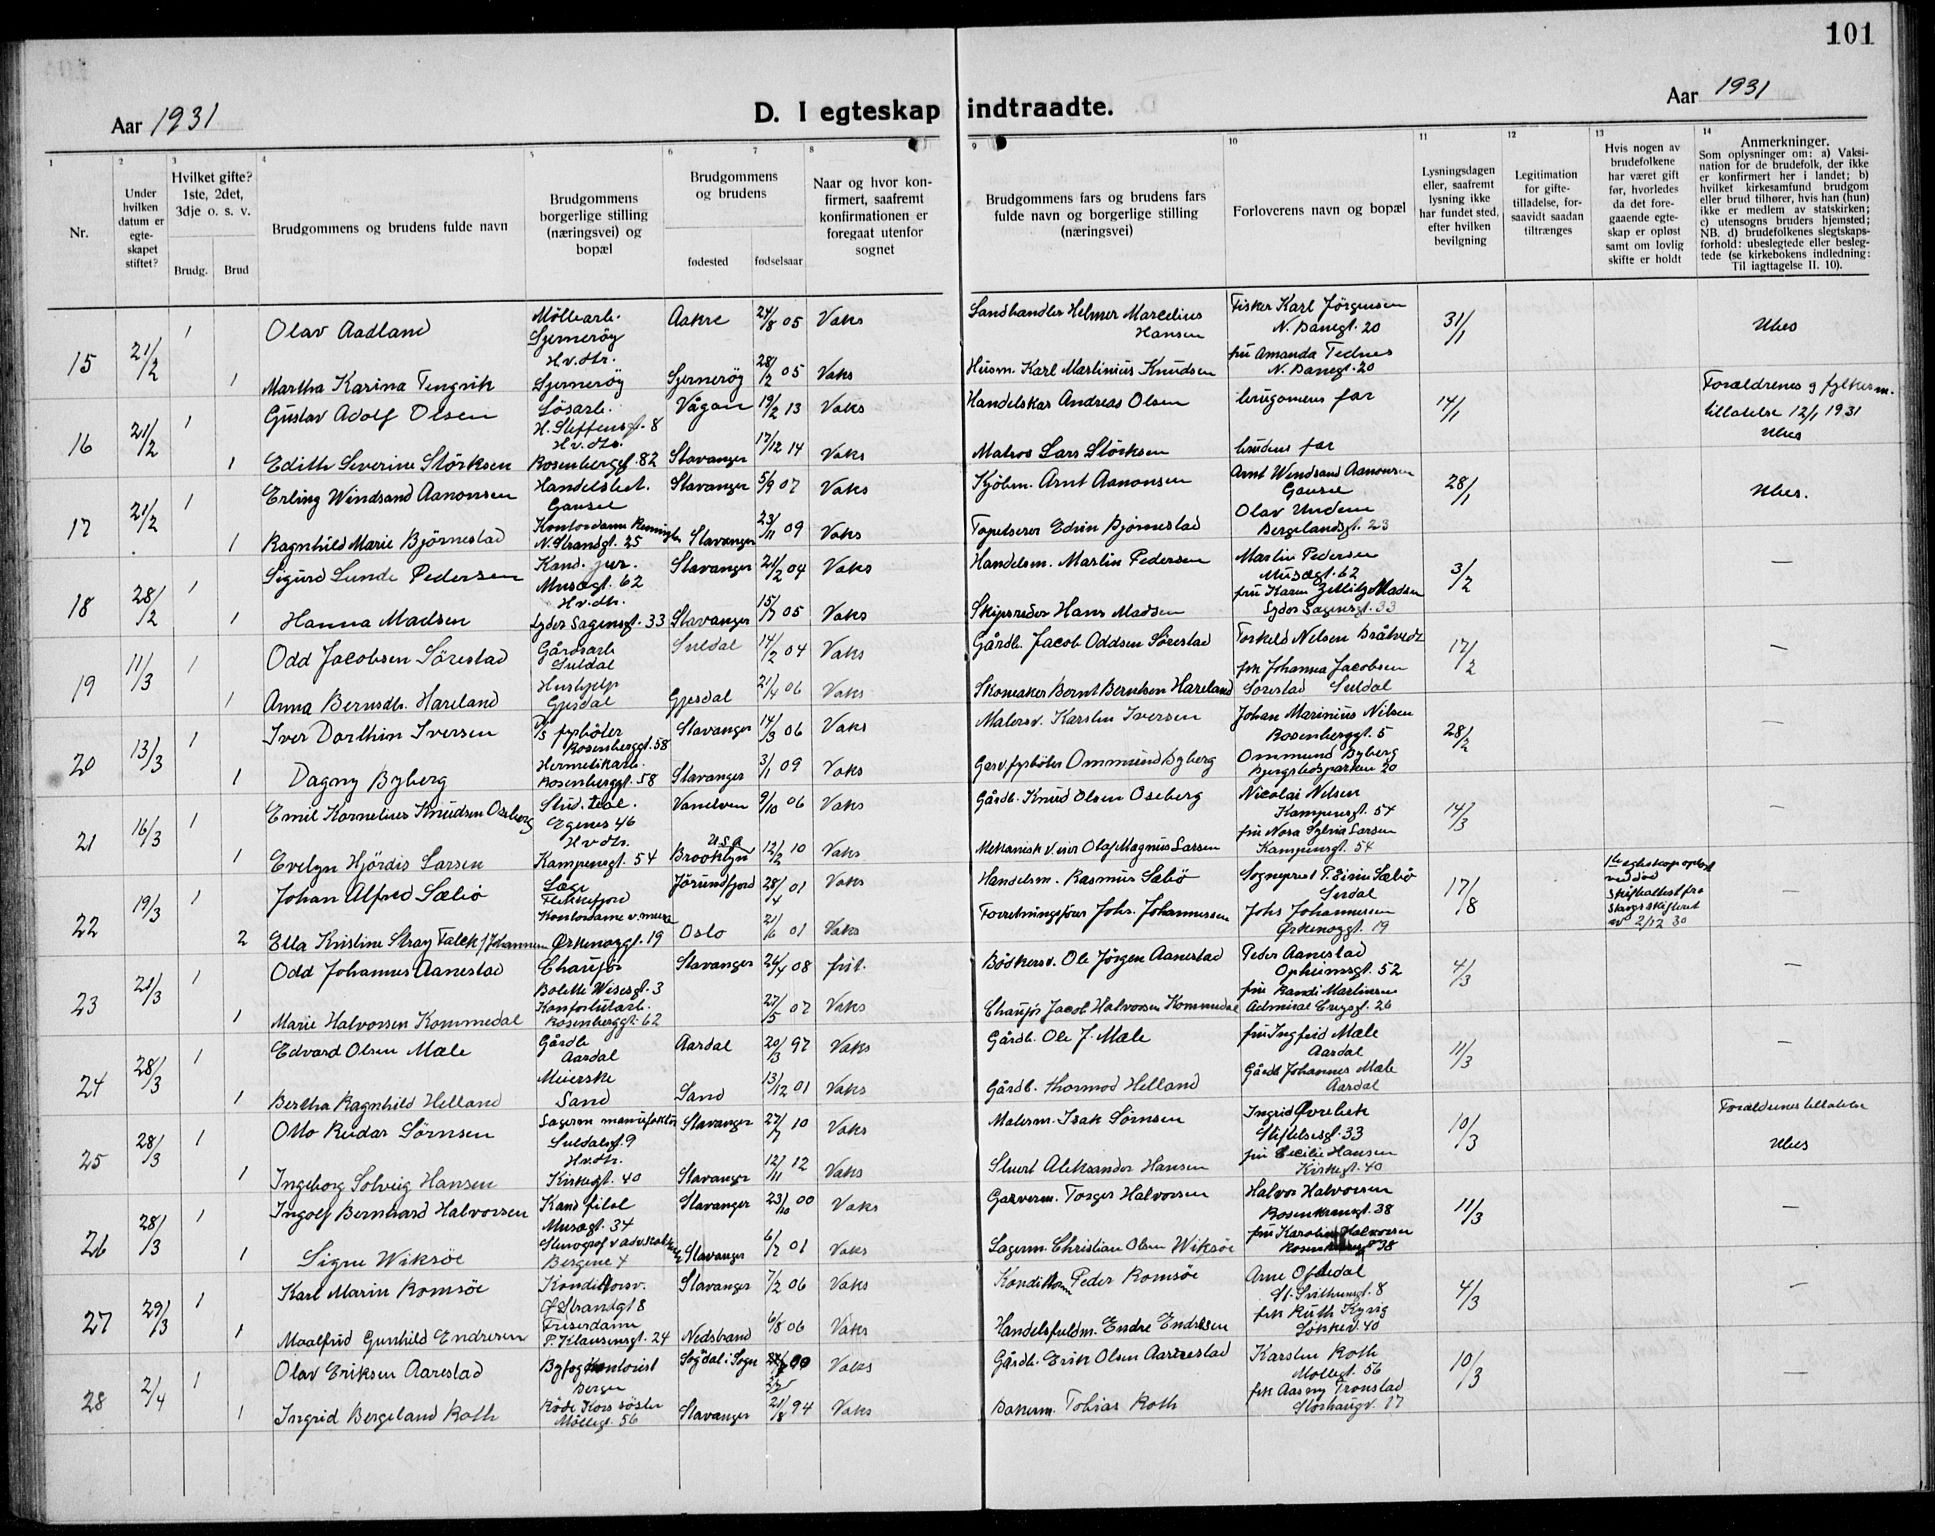 101
Aar 1931
D. I egteskap indtraadte.
Aar 1931
1 2 3 4 5 6 7 8 9 10 11 12 13 14
Nr.
Under hvilken datum er egte-skapet stiftet?
Hvilket gifte? 1ste, 2det, 3dje o. s. v.
Brudg. Brud
Brudgommens og brudens fulde navn
Brudgommens borgerlige stilling (næringsvei) og bopæl
Brudgommens og brudens
fødested fødselsaar
Naar og hvor kon-firmert, saafremt konfirmationen er foregaat utenfor sognet
Brudgommens fars og brudens fars fulde navn og borgerlige stilling (næringsvei)
Forloverens navn og bopæl
Lysningsdagen eller, saafremt lysning ikke har fundet sted, efter hvilken bevilgning
Legitimation for gifte-tilladelse, for-saavidt saadan tiltrænges
Hvis nogen av brudefolkene har været gift før, hvorledes da det fore-gaaende egte-skap er opløst samt om lovlig skifte er holdt
Anmerkninger.
Som oplysninger om: a) Vaksi-nation for de brudefolk, der ikke er konfirmert her i landet; b) hvilket kirkesamfund brudgom eller brud tilhører, hvis han (hun) ikke er medlem av statskirken; c) utensogns bruders hjemsted; NB. d) brudefolkenes slegtskaps-forhold: ubeslegtede eller besleg-tede (se kirkebokens indledning: Til iagttagelse II. 10).
15 21/2 1 Olav Aadland Møllearb. Sjernerøy Aakre 24/8 05 Vaks Landhandler Helmer Marcelius Hansen Fisker Karl Jørgensen N. Banegt. 20 31/1 Ubes
1 Martha Karina Tengvik Hv. dtr. Sjernerøy Sjernerøy 28/2 05 Vaks Husm. Karl Martinius Knudsen fru Amanda Tednes N. Banegt. 20
16 21/2 1 Gustav Adolf Olsen Løsarb. H. Steffensgt. 8 Vågan 19/2 13 Vaks Handelskar Andreas Olsen brugomens far 14/1 Forældrenes og fylkesm. tillatelse 12/1 1931 Ubes
1 Edith Severine Störksen Hv. dtr. Rosenberggt. 82 Stavanger 17/12 14 Vaks Matros Lars Störksen brudens far
17 21/2 1 Erling Windsand Aanonsen Handelsbet. Gausel Stavanger 5/9 07 Vaks Kjøbm. Arnt Aanonsen Arnt Windsand Aanonsen Gausel 28/1 Ubes.
1 Ragnhild Marie Bjørnestad Kontordame N. Strandgt. 25 Stavanger 23/11 09 Vaks Tapetserer Edvin Bjørnestad Olav Undem Bergelandsgt. 23
18 28/2 1 Sigurd Lunde Pedersen Kand. jur. Musægt. 62 Stavanger 21/2 04 Vaks Handelsm. Martin Pedersen Martin Pedersen Musægt. 62 3/2 —
1 Hanna Madsen Hv. dtr. Lyder Sagensgt. 33 Stavanger 15/7 05 Vaks Skipsreder Hans Madsen fru Karen Zetlitz Madsen Lyder Sagensgt. 33
19 11/3 1 Odd Jacobsen Sörestad Gårdsarb Suldal Suldal 14/2 04 Vaks Gårdb. Jacob Oddsen Sørestad Torkeld Nelsen Bråtvedt 17/2 —
1 Anna Berntsdtr. Hareland Hushjelp Gjesdal Gjesdal 21/4 06 Vaks Skomaker Bernt Berntsen Hareland frk Johanna Jacobsen Sorestad Suldal
20 13/3 1 Iver Dorthin Iversen D/s fyrbøter Rosenberggt. 58 Stavanger 14/3 06 Vaks Malersv. Karsten Iversen Johan Marinius Nilsen Rosenberggt. 5 28/2 —
1 Dagny Byberg Hermetikarb. Rosenberggt. 58 Stavanger 3/1 09 Vaks Gasv. fyrbøter Ommund Byberg Ommund Byberg Bjergstedsparken 20
21 16/3 1 Emil Kornelius Knudsen Oseberg Stud. teol. Egenes 46 Vanelven 9/10 06 Vaks Gårdb. Knud Olsen Oseberg Nicolai Nelsen Kampensgt. 54 14/3 —
1 Evelyn Hjördis Larsen Hv dtr. Kampensgt. 54 Brooklyn U.S.A 12/2 10 Vaks Mekanisk v. eier Olaf Magnus Larsen fru Nora Sylvia Larsen Kampensgt. 54
22 19/3 1 Johan Alfred Sæbö Læge Flekkefjord Jørundfjord 28/4 01 Vaks Handelsm. Rasmus Sæbö Sogneprest Sæbø Sirdal 17/8 1te egteskap opløst ved død Skifteattest fra 2/12 30
2 Ella Kristine Stray Falck f. Johannessen Kontordame Ørkenøygt. 19 Oslo 21/6 01 Vaks Forretningsfører Johs. Johannessen Johs Johannessen Ørkenøygt. 19
23 21/3 1 Odd Johannes Aanestad Chaufør Bolette Wiersgt. 3 Stavanger 24/4 08 frit. Bödkersv. Ole Jörgen Aanestad Peder Aanestad Opheimsgt. 52 4/3 —
1 Marie Halvorsen Kommedal Rosenberggt. 62 27/5 07 Vaks Chaufør Jacob Halvorsen Kommedal fru Randi Martinsen Admiral Cruysgt. 26
24 28/3 1 Edvard Olsen Mæle Gårdb Aardal Aardal 20/3 97 Vaks Gårdb. Ole J. Mæle fru Ingfrid Mæle Aardal 11/3 —
1 Bertha Ragnhild Helland Meierske Sand Sand 13/12 01 Vaks Gårdb. Thormod Helland Gårdb Johannes Mæle Aardal
25 28/3 1 Otto Reidar Sörnsen Lagerm manufaktur Suldalsgt. 9 Stavanger 27/7 10 Vaks Malerm. Isak Sörnsen Ingrid Øvrebek Stiftelsesgt. 33 10/3 Forældrenes tillatelse Ubes
1 Ingeborg Solveig Hansen Hv. dtr. Kirkegt. 40 Stavanger 12/11 12 Vaks Stuert Aleksander Hansen fru Cecilie Hansen Kirkegt. 40
26 28/3 1 Ingolf Bernhard Halvorsen Kand filol Musægt. 34 Stavanger 23/10 00 Vaks Garverm. Torger Halvorsen Halvor Halvorsen Rosenkransgt. 38 11/3 —
1 Signe Wiksöe Stenograf v advokat Bergene 4 Stavanger 6/7 01 Vaks Lagerm. Christian Olsen Wiksöe fru Karoline Halvorsen Rosenkransgt 38
27 29/3 1 Karl Marin Romsöe Konditorsv. Ø Strandgt 8 Stavanger 7/2 06 Vaks Konditor Peder Romsöe Arne Oftedal St. Svithunsgt. 8 4/3 —
1 Maalfrid Gunhild Endresen Friserdame P. Klausensgt. 24 Nedstrand 6/8 06 Vaks Handelsfuldm. Endre Endresen frk Ruth Kyvig Løkkev. 40
28 2/4 1 Olav Eriksen Aarestad Byfogdkontorist Bergen Sogdal i Sogn 00 Vaks Gårdb. Erik Olsen Aarrestad Karsten Roth Møllegt. 56 10/3 —
1 Ingrid Bergeland Roth Røde Kors søster Møllegt. 56 Stavanger 21/8 94 Vaks Bakerm. Tobias Roth frk Aasny Tronstad Storhaugv. 17